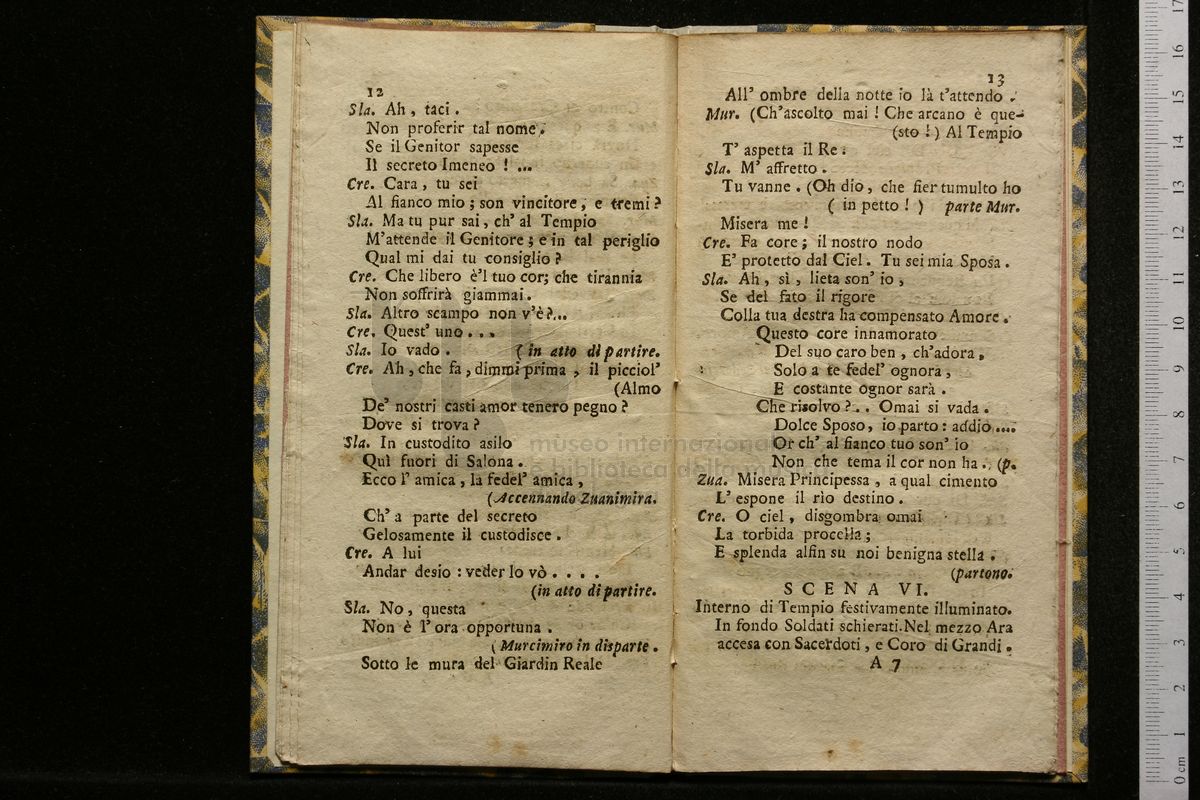 12
Sla. Ah, taci.
Non proferir tal nome.
Se il Genitor sapesse
Il secreto Imeneo ! ...
Cre. Cara, tu sei
Al fianco mio ; son vincitore, e tremi ?
Sla. Ma tu pur sai, ch' al Tempio
M'attende il Genitore ; e in tal periglio
Qual mi dai tu consiglio ?
Cre. Che libero è'l tuo cor; che tirannia
Non soffrirà giammai.
Sla. Altro scampo non v'è ?...
Cre. Quest' uno . . .
Sla. Io vado . ( in atto di partire.
Cre. Ah, che fa, dimmi prima, il picciol'
(Almo
De' nostri casti amor tenero pegno ?
Dove si trova ?
Sla. In custodito asilo
Quì fuori di Salona.
Ecco l' amica, la fedel' amica,
(Accennando Zuanimira.
Ch' a parte del secreto
Gelosamente il custodisce.
Cre. A lui
Andar desio : veder lo vò . . . .
(in atto di partire.
Sla. No, questa
Non è l' ora opportuna.
( Murcimiro in disparte.
Sotto le mura del Giardin Reale
13
All' ombre della notte io là t'attendo.
Mur. (Ch'ascolto mai ! Che arcano è que-
(sto ! ) Al Tempio
T' aspetta il Re.
Sla. M' affretto.
Tu vanne. (Oh dio, che fier tumulto ho
( in petto ! ) parte Mur.
Misera me !
Cre. Fa core ; il nostro nodo
E' protetto dal Ciel. Tu sei mia Sposa.
Sla. Ah, sì, lieta son' io,
Se del fato il rigore
Colla tua destra ha compensato Amore.
Questo core innamorato
Del suo caro ben, ch'adora,
Solo a te fedel' ognora,
E costante ognor sarà.
Che risolvo ? . . Omai si vada.
Dolce Sposo, io parto : addio ....
Or ch' al fianco tuo son' io
Non che tema il cor non ha.. (p.
Zua. Misera Principessa, a qual cimento
L' espone il rio destino.
Cre. O ciel, disgombra omai
La torbida procella ;
E splenda alfin su noi benigna stella.
(partono.
SCENA VI.
Interno di Tempio festivamente illuminato.
In fondo Soldati schierati. Nel mezzo Ara
accesa con Sacerdoti, e Coro di Grandi.
A 7
museo internazionale
e biblioteca della musica
0 cm 1 2 3 4 5 6 7 8 9 10 11 12 13 14 15 16 17